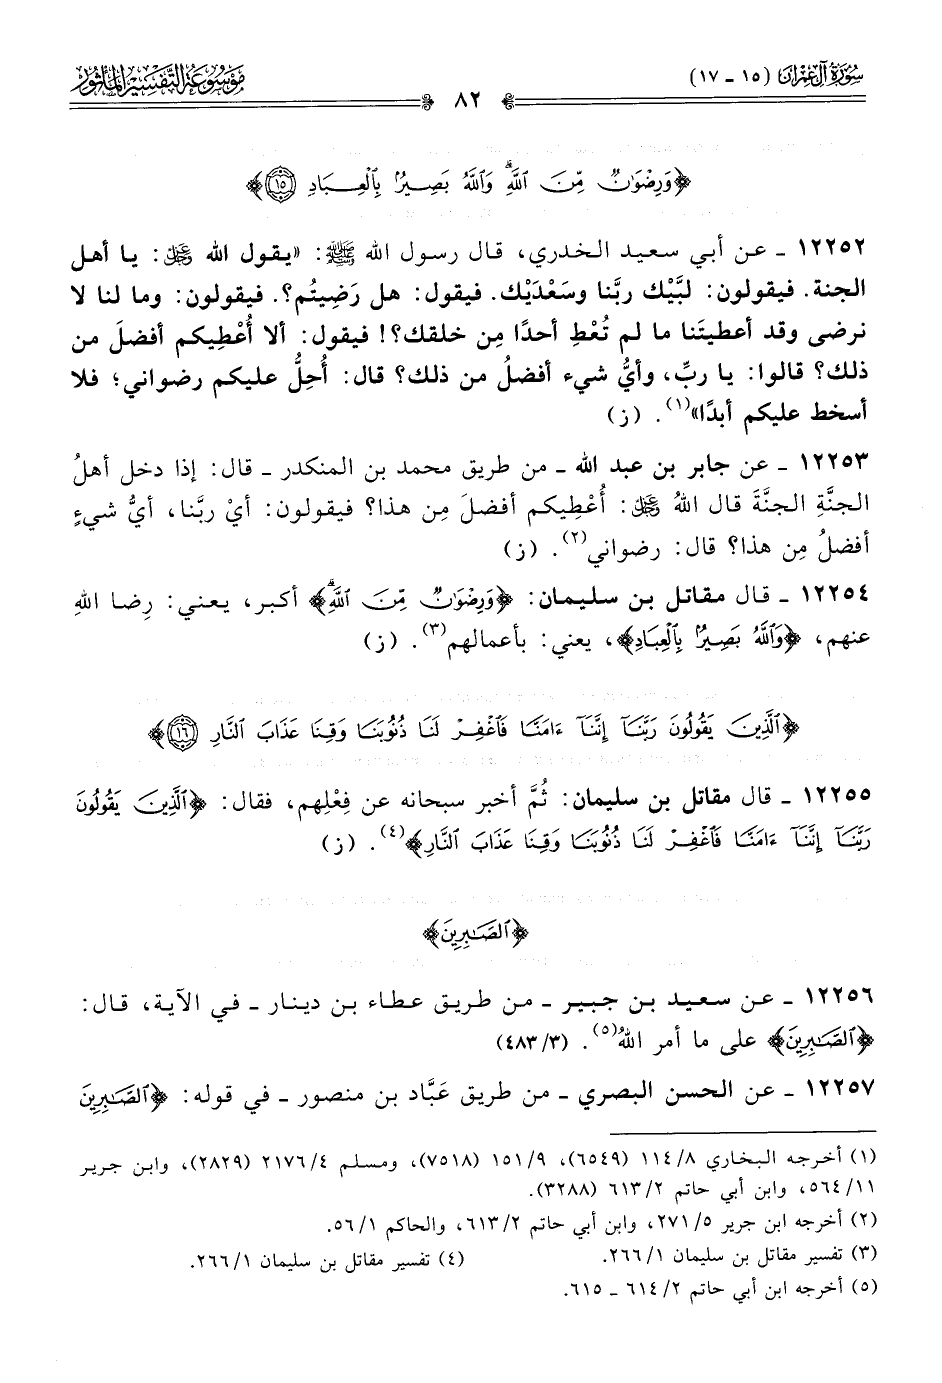 سورة آل عمران (١٥ - ١٧)
موسوعة التفسير المأثور
٨٢
﴿وَرِضْوَٰنٌ مِّنَ ٱللَّهِۗ وَٱللَّهُ بَصِيرٌۢ بِٱلْعِبَادِ ١٥﴾
١٢٢٥٢ - عن أبي سعيد الخدري، قال رسول الله ﷺ: «يقول الله ﷻ: يا أهل
الجنة. فيقولون: لبَّيْك ربَّنا وسَعْدَيْك. فيقول: هل رَضِيتُم؟. فيقولون: وما لنا لا
نرضى وقد أعطيتَنا ما لم تُعْطِ أحدًا مِن خلقك؟! فيقول: ألا أُعْطِيكم أفضلَ من
ذلك؟ قالوا: يا ربِّ، وأيُّ شيء أفضلُ من ذلك؟ قال: أُحِلُّ عليكم رضواني؛ فلا
أسخط عليكم أبدًا»(١). (ز)
١٢٢٥٣ - عن جابر بن عبد الله - من طريق محمد بن المنكدر - قال: إذا دخل أهلُ
الجنَّةِ الجنَّةَ قال اللهُ ﷻ: أُعْطِيكم أفضلَ مِن هذا؟ فيقولون: أيْ ربَّنا، أيُّ شيءٍ
أفضلُ مِن هذا؟ قال: رضواني(٢). (ز)
١٢٢٥٤ - قال مقاتل بن سليمان: ﴿وَرِضْوَٰنٌ مِّنَ ٱللَّهِۗ﴾ أكبر، يعني: رِضا اللهِ
عنهم، ﴿وَٱللَّهُ بَصِيرٌۢ بِٱلْعِبَادِ﴾، يعني: بأعمالهم(٣). (ز)
﴿ٱلَّذِينَ يَقُولُونَ رَبَّنَآ إِنَّنَآ ءَامَنَّا فَٱغْفِرْ لَنَا ذُنُوبَنَا وَقِنَا عَذَابَ ٱلنَّارِ ١٦﴾
١٢٢٥٥ - قال مقاتل بن سليمان: ثُمَّ أخبر سبحانه عن فِعْلِهم، فقال: ﴿ٱلَّذِينَ يَقُولُونَ
رَبَّنَآ إِنَّنَآ ءَامَنَّا فَٱغْفِرْ لَنَا ذُنُوبَنَا وَقِنَا عَذَابَ ٱلنَّارِ﴾(٤). (ز)
﴿ٱلصَّـٰبِرِينَ﴾
١٢٢٥٦ - عن سعيد بن جبير - من طريق عطاء بن دينار - في الآية، قال:
﴿ٱلصَّـٰبِرِينَ﴾ على ما أمر اللهُ(٥). (٤٨٣/٣)
١٢٢٥٧ - عن الحسن البصري - من طريق عَبَّاد بن منصور - في قوله: ﴿ٱلصَّـٰبِرِينَ
(١) أخرجه البخاري ١١٤/٨ (٦٥٤٩)، ١٥١/٩ (٧٥١٨)، ومسلم ٢١٧٦/٤ (٢٨٢٩)، وابن جرير
٥٦٤/١١، وابن أبي حاتم ٦١٣/٢ (٣٢٨٨).
(٢) أخرجه ابن جرير ٢٧١/٥، وابن أبي حاتم ٦١٣/٢، والحاكم ٥٦/١.
(٣) تفسير مقاتل بن سليمان ٢٦٦/١. (٤) تفسير مقاتل بن سليمان ٢٦٦/١.
(٥) أخرجه ابن أبي حاتم ٦١٤/٢ - ٦١٥.